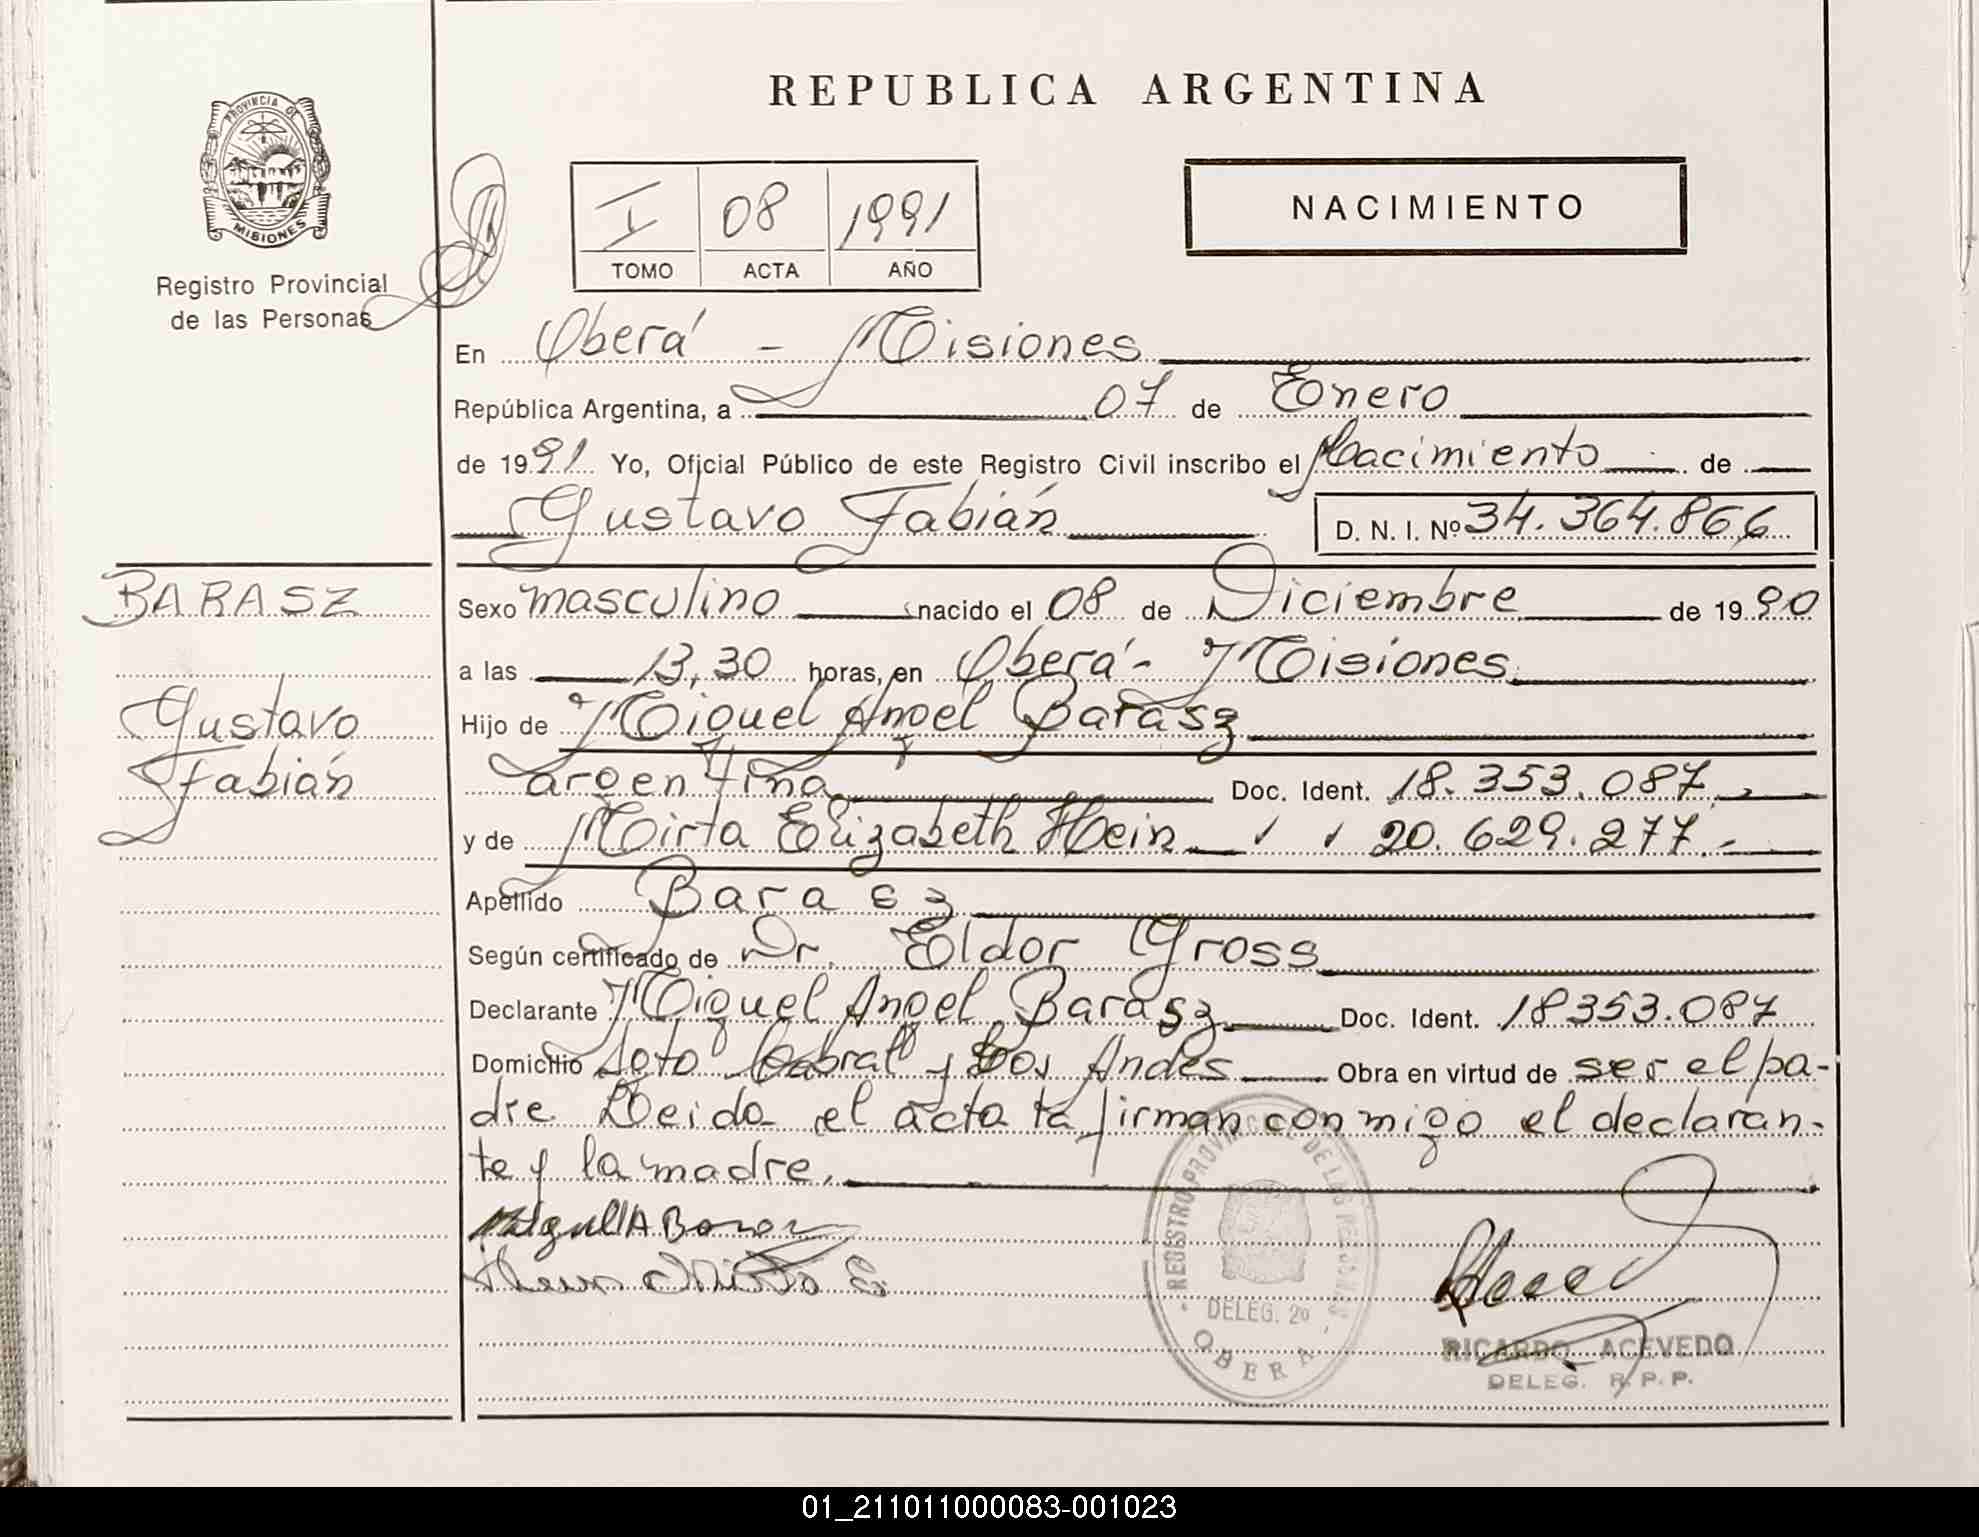 REPUBLICA ARGENTINA
PROVINCIA DE
MISIONES
Registro Provincial
de las Personas
I 08 1991
TOMO ACTA AÑO
NACIMIENTO
En Oberá - Misiones
República Argentina, a 07 de Enero
de 1991 Yo, Oficial Público de este Registro Civil inscribo el Nacimiento de
Gustavo Fabián D. N. I. Nº 34.364.866
BARASZ
Gustavo
Fabián
Sexo masculino nacido el 08 de Diciembre de 1990
a las 13,30 horas, en Oberá - Misiones
Hijo de Miguel Angel Barasz
argentina Doc. Ident. 18.353.087.-
y de Mirta Elizabeth Hein 20.629.277.-
Apellido Barasz
Según certificado de Dr. Eldor Gross
Declarante Miguel Angel Barasz Doc. Ident. 18353.087
Domicilio Soto Cabral y Los Andes Obra en virtud de ser el pa-
dre. Leida el acta la firman conmigo el declaran-
te y la madre.
Miguel A Barasz
Mirta E
REGISTRO PROVINCIAL DE LAS PERSONAS
DELEG. 2º
OBERA
RICARDO ACEVEDO
DELEG. R. P. P.
01_211011000083-001023